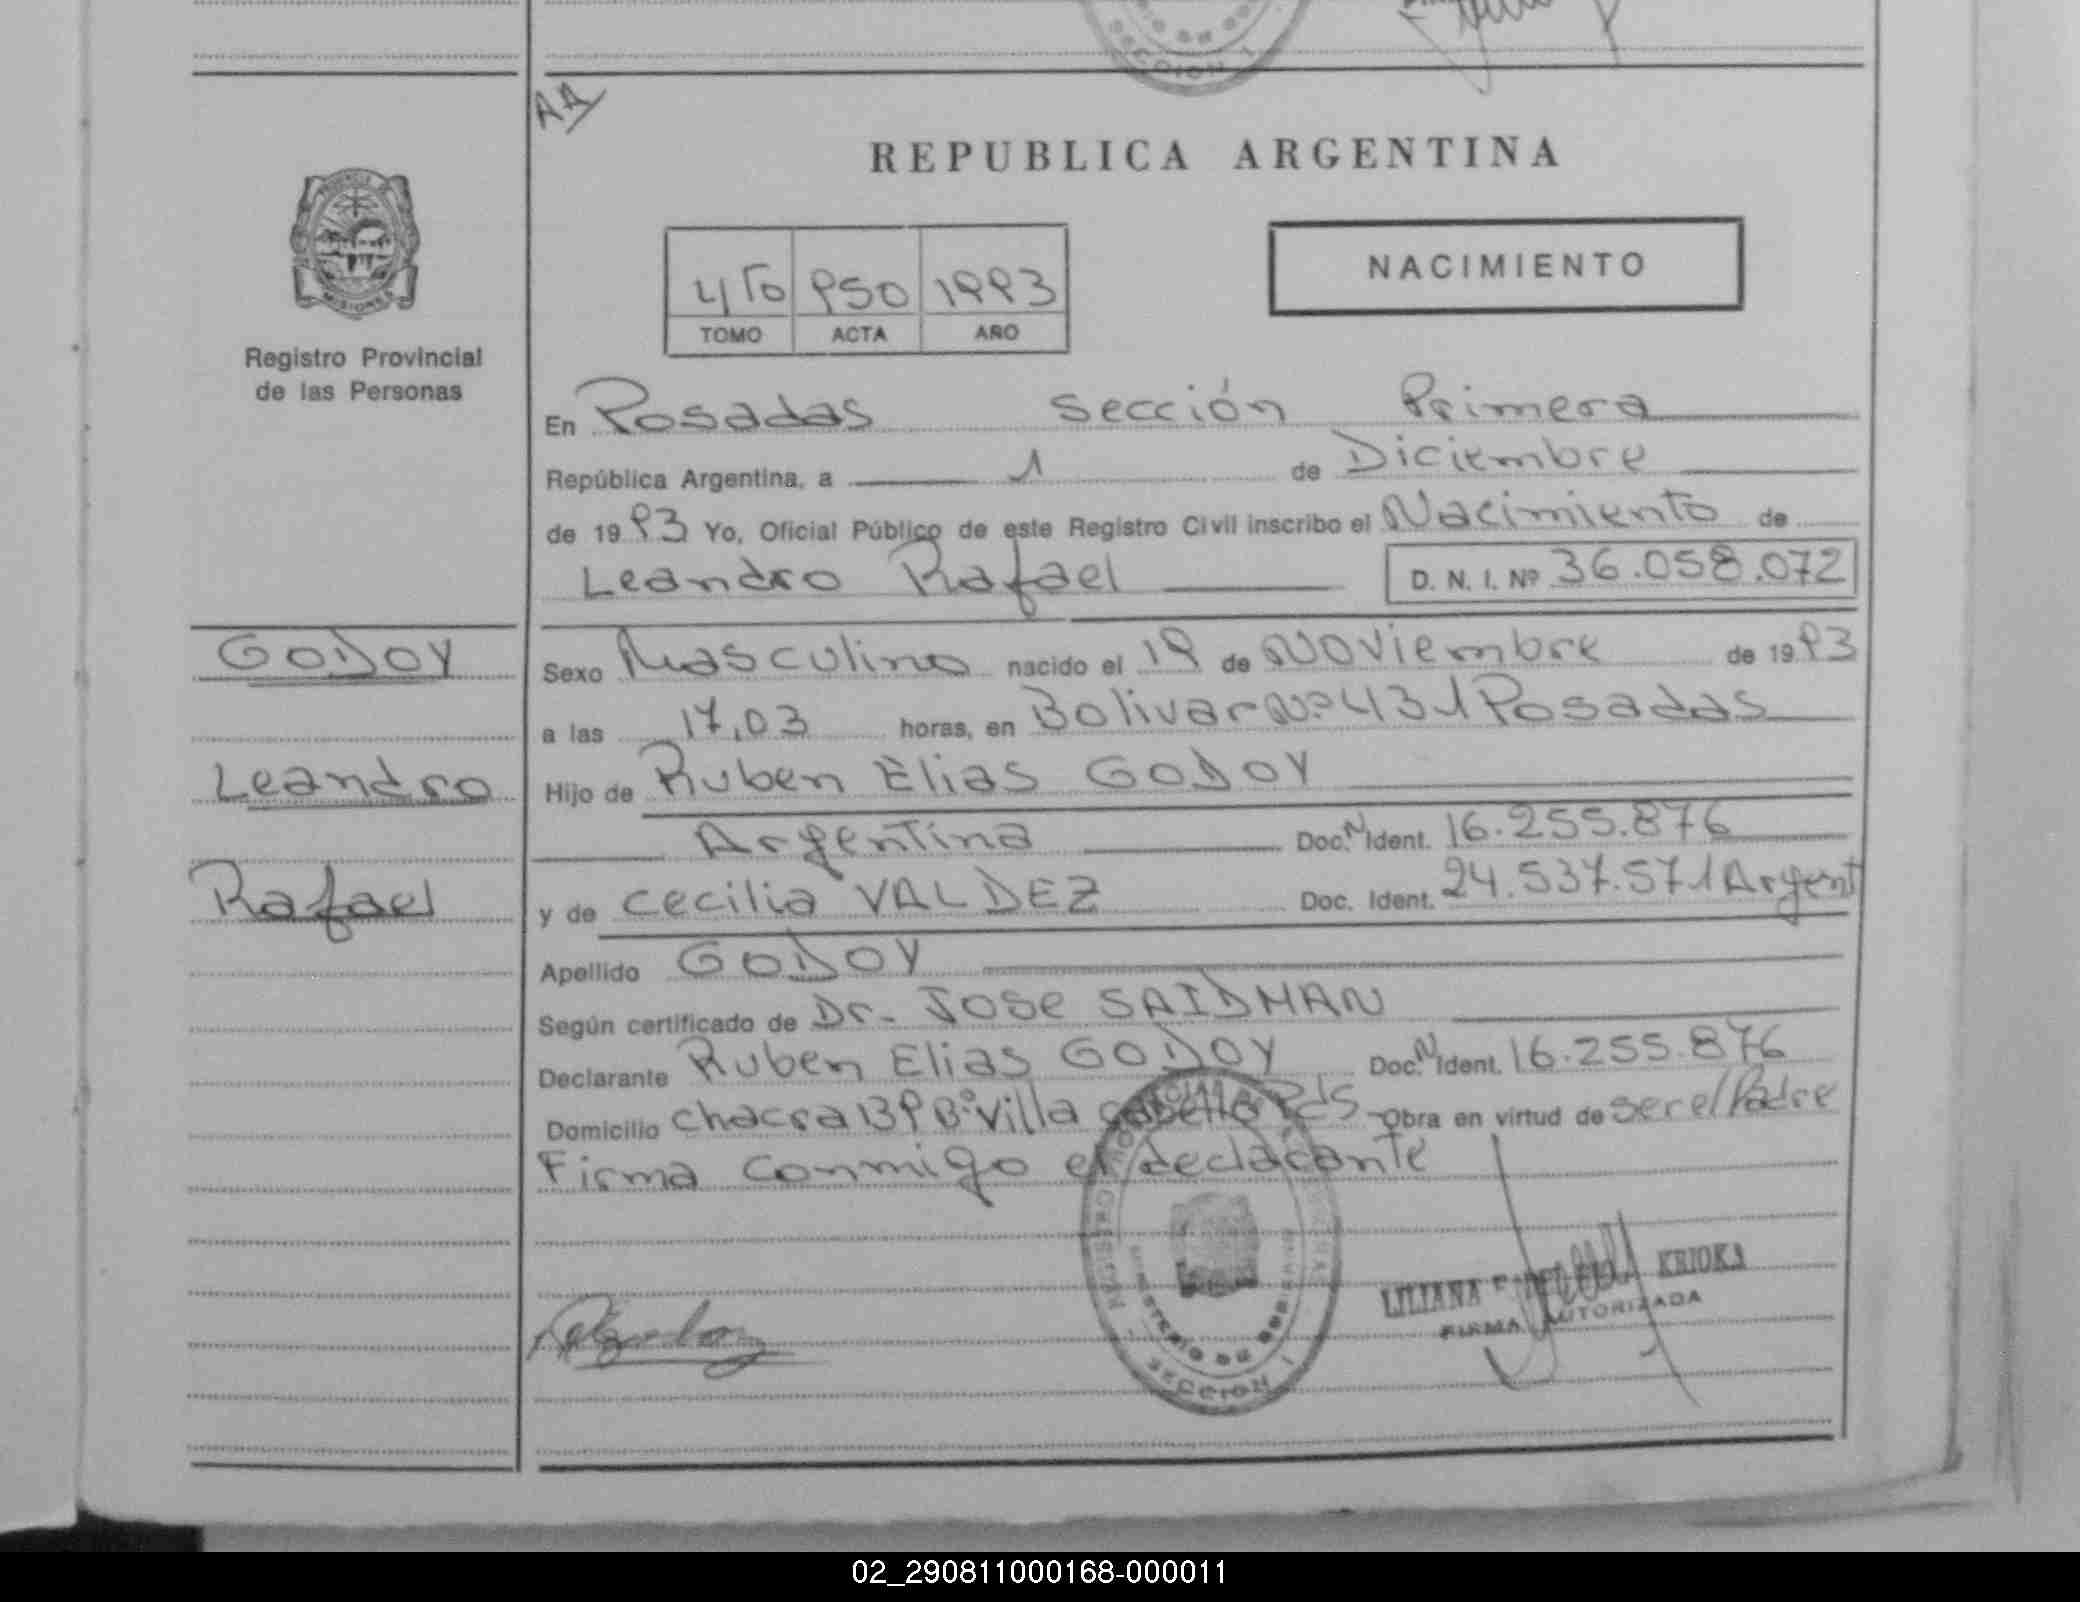 SECCION I
AA
REPUBLICA ARGENTINA
MISIONES
Registro Provincial
de las Personas
4to 950 1993
TOMO ACTA AÑO
NACIMIENTO
En Posadas Sección Primera
República Argentina, a 1 de Diciembre
de 1993 Yo, Oficial Público de este Registro Civil inscribo el Nacimiento de
Leandro Rafael D. N. I. Nº 36.058.072
GODOY
Sexo Masculino nacido el 19 de Noviembre de 1993
a las 17,03 horas, en Bolivar Nº 431 Posadas
Leandro
Hijo de Ruben Elias GODOY
Argentina Doc. N Ident. 16.255.876
Rafael
y de Cecilia VALDEZ Doc. Ident. 24.537.571 Argent
Apellido GODOY
Según certificado de Dr. JOSE SAIDMAN
Declarante Ruben Elias GODOY Doc. N Ident. 16.255.876
Domicilio Chacra 139 Bº Villa Cabello Pds Obra en virtud de ser el Padre
Firma conmigo el declarante
SECCION I
LILIANA KRIOKA
FIRMA AUTORIZADA
02_290811000168-000011